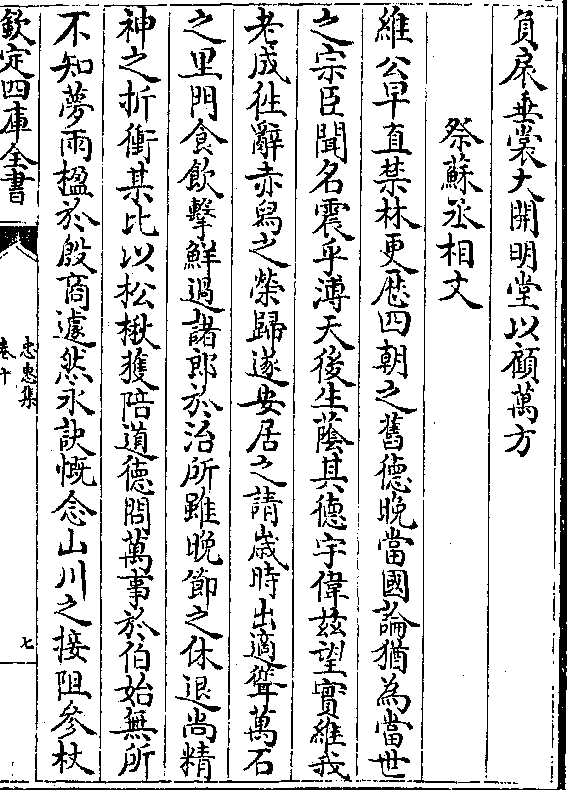 負扆垂裳大開明堂以顧萬方
祭蘇丞相文
維公早直禁林更歷四朝之舊德晚當國論猶為當世
之宗臣聞名震乎溥天後生蔭其德宇偉兹望實維我
老成徃辭赤舄之榮歸遂安居之請歲時出適聳萬石
之里門食飲擊鮮過諸郎於治所雖晚節之休退尚精
神之折衝某比以松楸獲陪道德問萬事於伯始無所
不知夢兩楹於殷商遽然永訣慨念山川之接阻參杖
欽定四庫全書
忠惠集
卷十
七